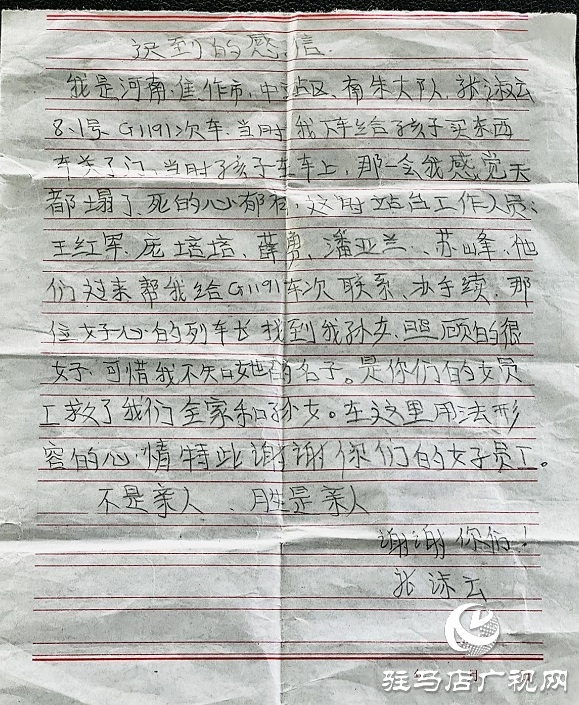 迟到的感信
我是河南.焦作市.中站区.南朱大队.张淑云
8.1号G1191次车.当时我下车给孩子买东西
车关了门.当时孩子在车上,那一会我感觉天
都塌了.死的心都有,这时站台工作人员、
王红军.庞培培、薛勇、潘亚兰、苏峰、他
们过来帮我给G1191车次联系、办手续.那
位好心的列车长找到我孙女.照顾的很
好.可惜我不知她的名子。是你们的好员
工救了我们全家和孙女。在这里用法形
容的心情特此谢谢你们的好员工。
不是亲人、胜是亲人
谢谢你们!
张淑云
年 月 日
驻马店广视网